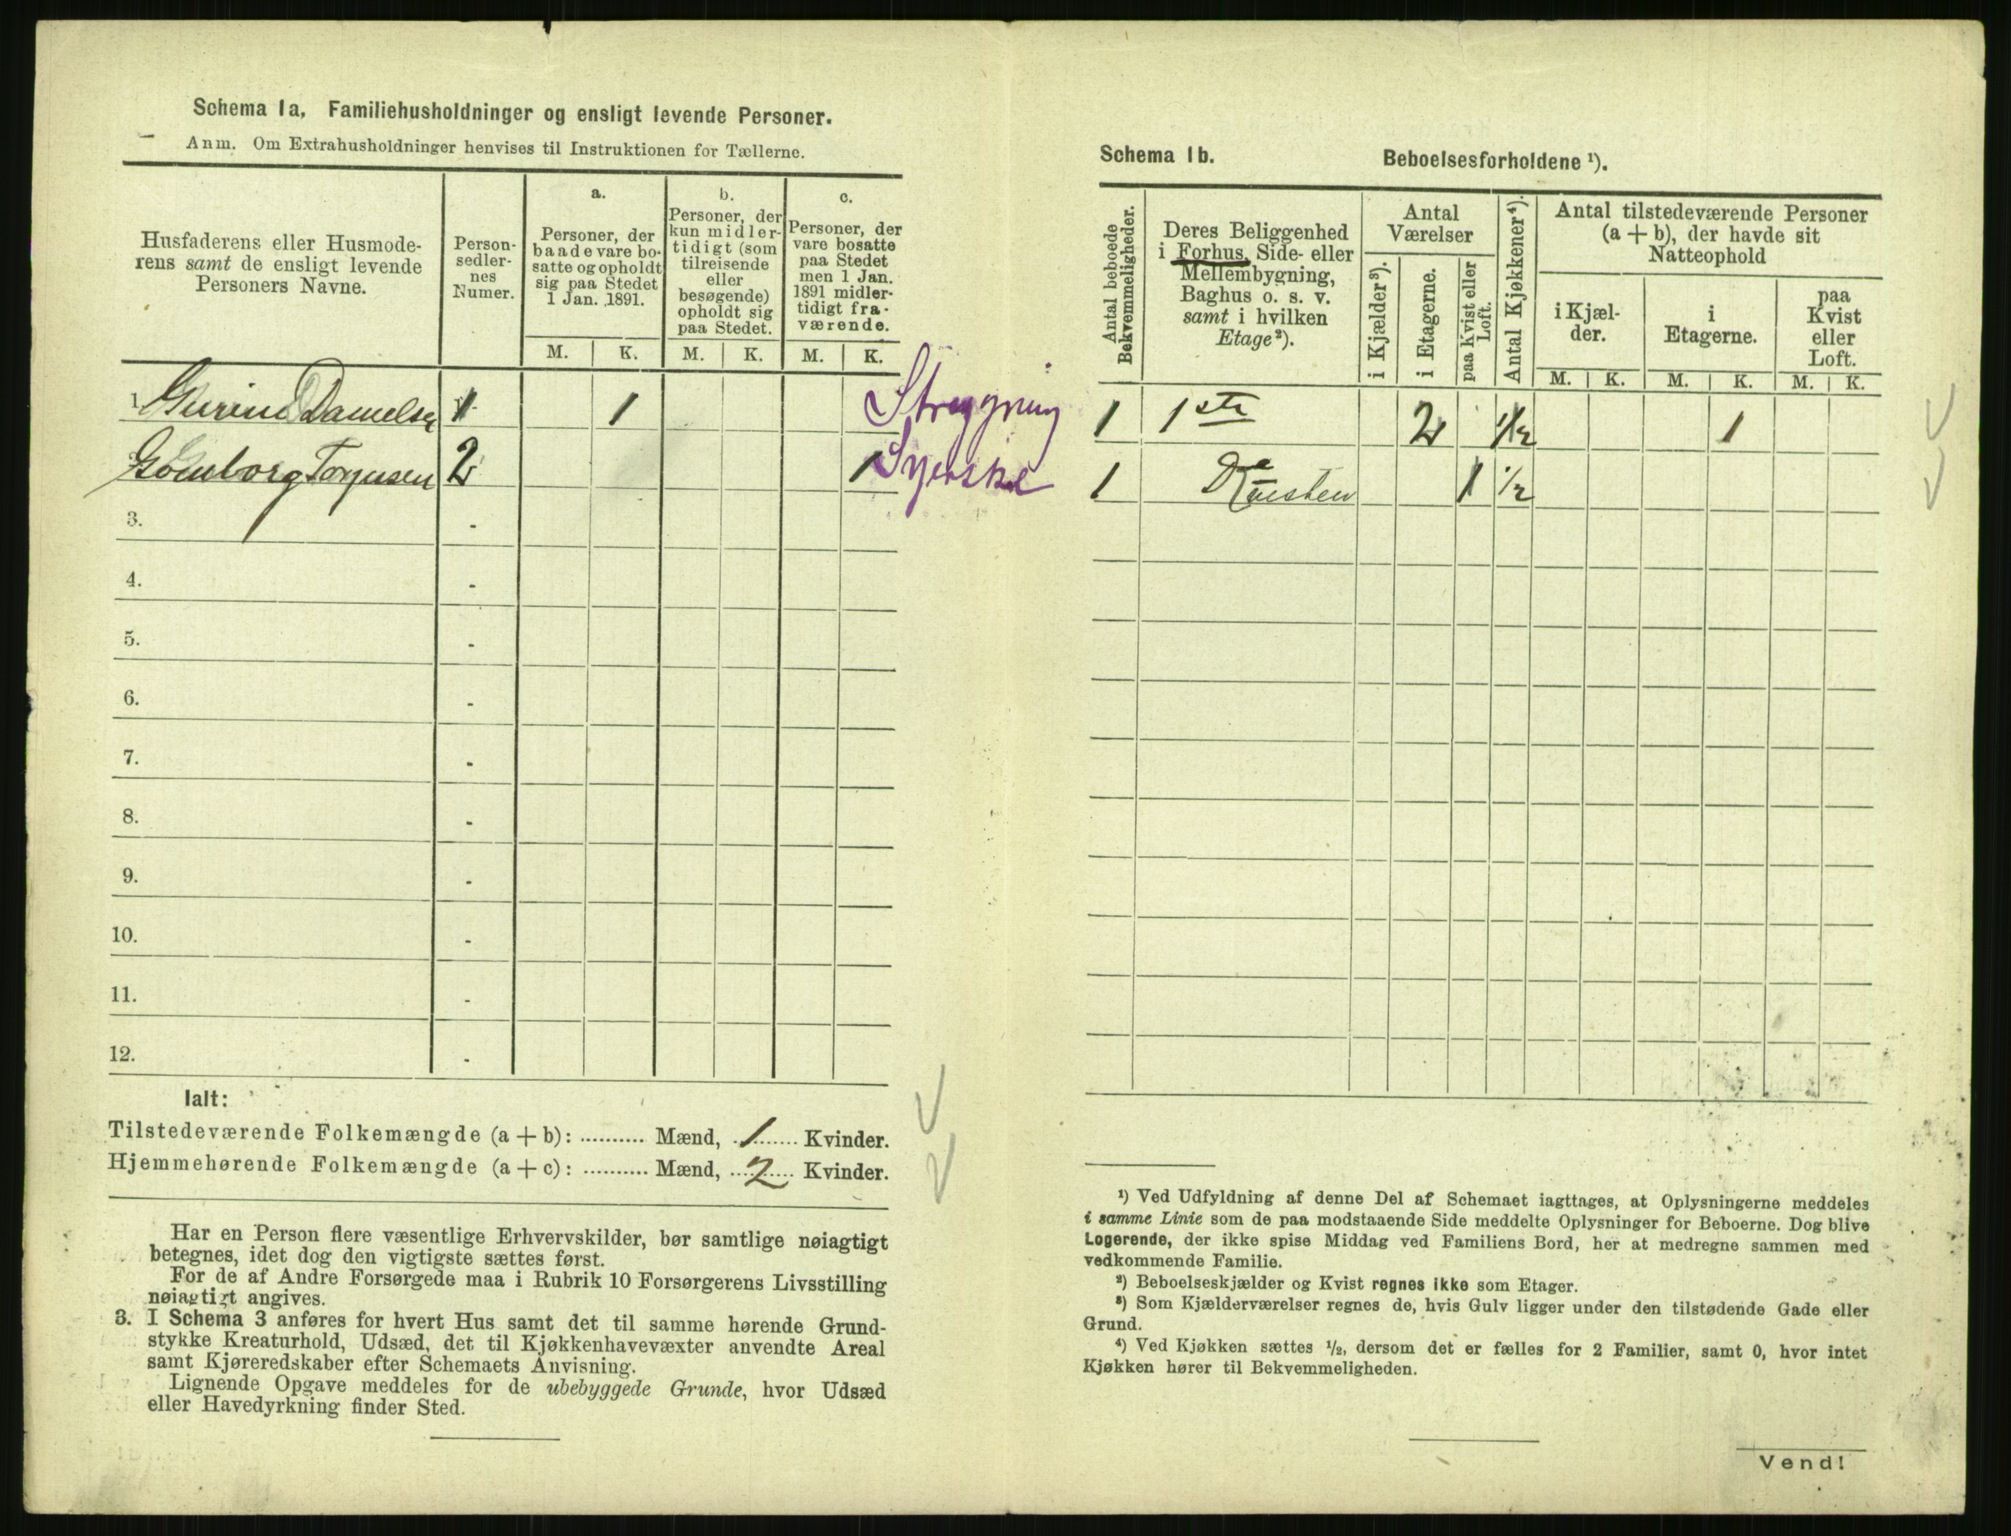 Schema 1a. Familiehusholdninger og ensligt levende Personer.
Anm. Om Extrahusholdninger henvises til Instruktionen for Tællerne.
Husfaderens eller Husmode-
rens samt de ensligt levende
Personers Navne.
Person-
sedler-
nes
Numer.
a.
Personer, der
baade vare bo-
satte og opholdt
sig paa Stedet
1 Jan. 1891.
b.
Personer, der
kun midler-
tidigt (som
tilreisende
eller
besøgende)
opholdt sig
paa Stedet.
c.
Personer, der
vare bosatte
paa Stedet
men 1 Jan.
1891 midler-
tidigt fra-
værende.
M. K. M. K. M. K.
1. Danielsen 1 1 Strygning
Torjusen 2 1 Syerske
3. -
4. -
5. -
6. -
7. -
8. -
9. -
10. -
11. -
12. -
Ialt:
Tilstedeværende Folkemængde (a + b): .......... Mænd, 1 Kvinder.
Hjemmehørende Folkemængde (a + c): .......... Mænd, 2 Kvinder.
Har en Person flere væsentlige Erhvervskilder, bør samtlige nøiagtigt
betegnes, idet dog den vigtigste sættes først.
For de af Andre Forsørgede maa i Rubrik 10 Forsørgerens Livsstilling
nøiagtigt angives.
3. I Schema 3 anføres for hvert Hus samt det til samme hørende Grund-
stykke Kreaturhold, Udsæd, det til Kjøkkenhavevæxter anvendte Areal
samt Kjøreredskaber efter Schemaets Anvisning.
Lignende Opgave meddeles for de ubebyggede Grunde, hvor Udsæd
eller Havedyrkning finder Sted.
Schema 1b. Beboelsesforholdene ¹).
Antal beboede
Bekvemmeligheder.
Deres Beliggenhed
i Forhus, Side- eller
Mellembygning,
Baghus o. s. v.
samt i hvilken
Etage²).
Antal
Værelser
i Kjælder³).
i Etagerne.
paa Kvist eller
Loft.
Antal Kjøkkener⁴).
Antal tilstedeværende Personer
(a + b), der havde sit
Natteophold
i Kjæl-
der.
i
Etagerne.
paa
Kvist
eller
Loft.
M. K. M. K. M. K.
1 1ste 2 1/2 1
1 1 1/2
¹) Ved Udfyldning af denne Del af Schemaet iagttages, at Oplysningerne meddeles
i samme Linie som de paa modstaaende Side meddelte Oplysninger for Beboerne. Dog blive
Logerende, der ikke spise Middag ved Familiens Bord, her at medregne sammen med
vedkommende Familie.
²) Beboelseskjælder og Kvist regnes ikke som Etager.
³) Som Kjælderværelser regnes de, hvis Gulv ligger under den tilstødende Gade eller
Grund.
⁴) Ved Kjøkken sættes ½, dersom det er fælles for 2 Familier, samt 0, hvor intet
Kjøkken hører til Bekvemmeligheden.
Vend!